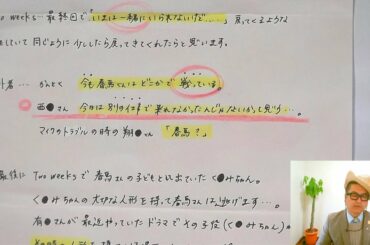 two weeks…最終回で「いまは一緒にいられないだ……」戻ってくるような
として同じように少ししたら戻ってきてくれたらと思います。
今も春馬くんはどこかで戦っている。
西●さん 今日は別の仕事で来れなかったんじゃないかと思う…。
マイクのトラブルの時の翔●さん 「春馬？」
最後に Two weeksで春馬さんの子どもとして出ていたく●みちゃん。
く●みちゃんの大切な人形を持って春馬さんは逃げます…。
有●さんが最近やっていたドラマでその子役(く●みちゃん)